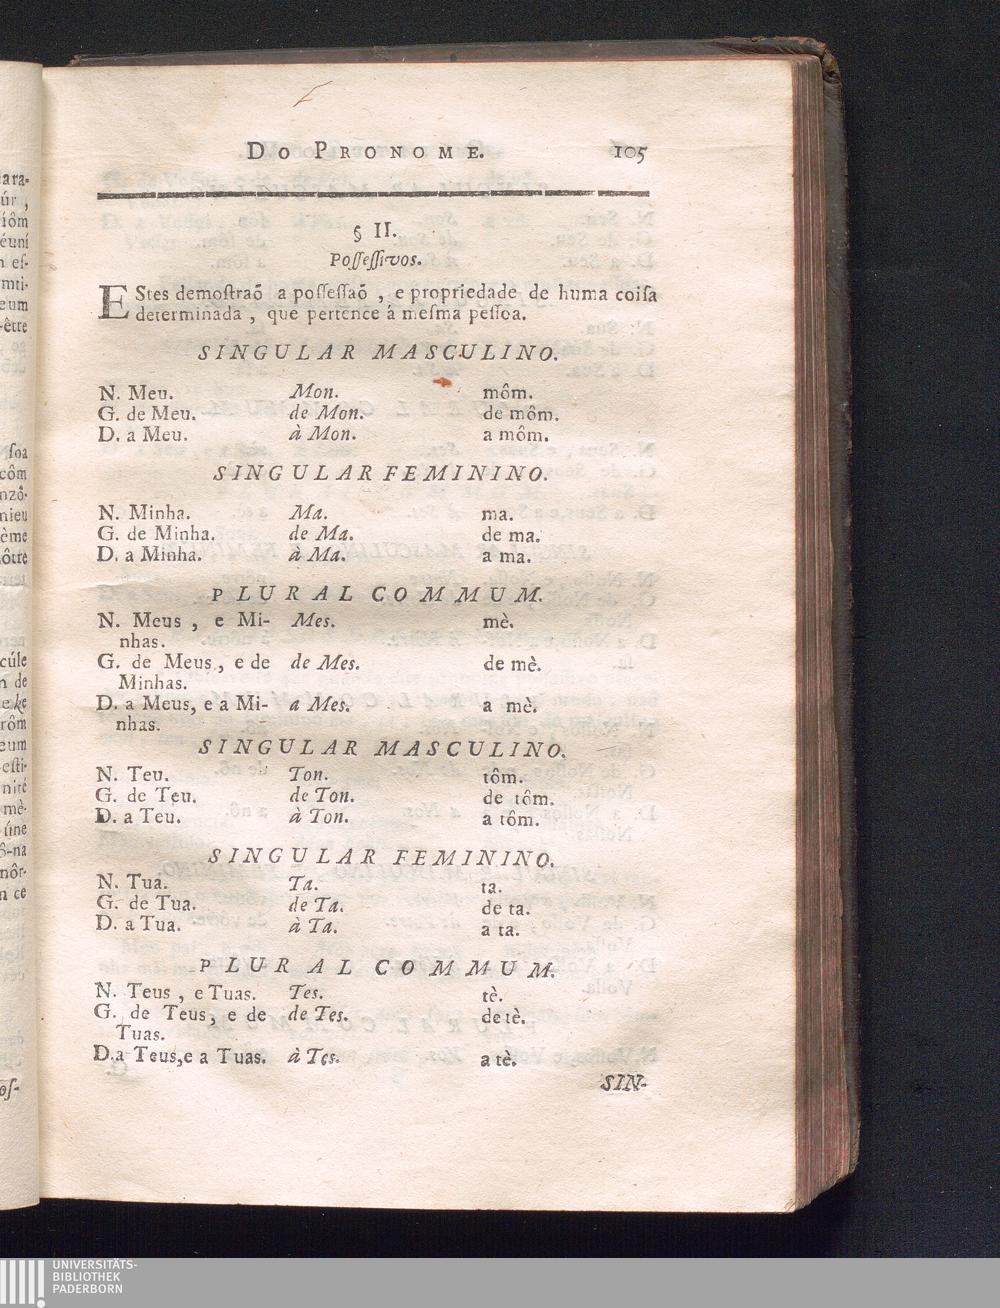 Do Pronome. 105
§ II.
Poſſeſſivos.
EStes demoſtraõ a poſſeſſaõ , e propriedade de huma coiſa
determinada , que pertence á meſma peſſoa.
SINGULAR MASCULINO.
N. Meu. Mon. môm.
G. de Meu. de Mon. de môm.
D. a Meu. à Mon. a môm.
SINGULAR FEMININO.
N. Minha. Ma. ma.
G. de Minha. de Ma. de ma.
D. a Minha. à Ma. a ma.
PLURAL COMMUM.
N. Meus , e Mi- Mes. mè.
nhas.
G. de Meus , e de de Mes. de mè.
Minhas.
D. a Meus, e a Mi- a Mes. a mè.
nhas.
SINGULAR MASCULINO.
N. Teu. Ton. tôm.
G. de Teu. de Ton. de tôm.
D. a Teu. à Ton. a tôm.
SINGULAR FEMININO.
N. Tua. Ta. ta.
G. de Tua. de Ta. de ta.
D. a Tua. à Ta. a ta.
PLURAL COMMUM.
N. Teus , e Tuas. Tes. tè.
G. de Teus, e de de Tes. de tè.
Tuas.
D.a Teus,e a Tuas. à Tes. a tè.
SIN-
UNIVERSITÄTS-
BIBLIOTHEK
PADERBORN